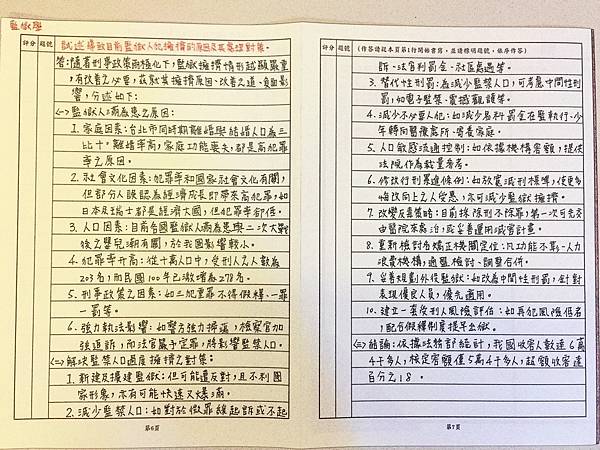 監獄學
評分
題號
試述導致目前監獄人犯擁擠的原因及其處理對策。
答:隨著刑事政策兩極化下,監獄擁擠情形越顯嚴重
,有改善之必要,茲就其擁擠原因、改善之道、負面影
響,分述如下:
㈠監獄人滿為患之原因:
1. 家庭因素:台北市同時期離婚與結婚人口為三
比十。離婚率高,家庭功能喪失,都是高犯罪
率之原因。
2. 社會文化因素:犯罪率和國家社會文化有關,
但部分人誤認為經濟成長即帶來高犯罪,如
日本及瑞士都是經濟大國,但犯罪率卻低。
3. 人口因素:目前各國監獄人滿為患與二次大戰
後之嬰兒潮有關,於我國影響較小。
4. 犯罪率升高:從十萬人口中,受刑人之人數為
203名,而民國100年已激增為278名。
5. 刑事政策之因素:如三犯重罪不得假釋、一罪
一罰等。
6. 強力執法影響:如警方強力掃蕩,檢察官加
強追訴,而法官嚴予定罪,將影響監禁人口。
㈡解決監禁人口過度擁擠之對策:
1. 新建及擴建監獄:但可能遭反對,且不利國
家形象,亦有可能快速又爆滿。
2. 減少監禁人口:如對於微罪緩起訴或不起
第6頁
評分
題號
(作答請從本頁第1行開始書寫,並請標明題號,依序作答)
訴、法官判罰金、社區處遇等。
3. 替代性刑罰:為減少監禁人口,可考慮中間性刑
罰,如電子監禁、震撼觀護等。
4. 減少不必要人犯:如減少易科罰金在監執行、少
年轉向醫療處所、寄養家庭。
5. 人口敏感流通控制:如依據機構容額,提供
法院作為數量參考。
6. 修改行刑累進條例:如放寬減刑標準,使更多
悔改向上之人受惠,亦可減少監獄擁擠。
7. 改變反毒策略:目前採除刑不除罪,第一次可先交
由醫院來處治,或妥善運用減害計畫。
8. 重新檢討各矯正機關定位:凡功能不彰、人力
浪費機構,通盤檢討、調整合併。
9. 妥善規劃外役監獄:如改為中間性刑罰,針對
表現優良人員,優先適用。
10. 建立一套假利人風險評估:如再犯風險低者
,配合假釋制度提早出獄。
㈢結論:依據法務部統計,我國收容人數達6萬
4千多人,核定容額僅5萬4千多人,超額收容達
百分之18。
第7頁